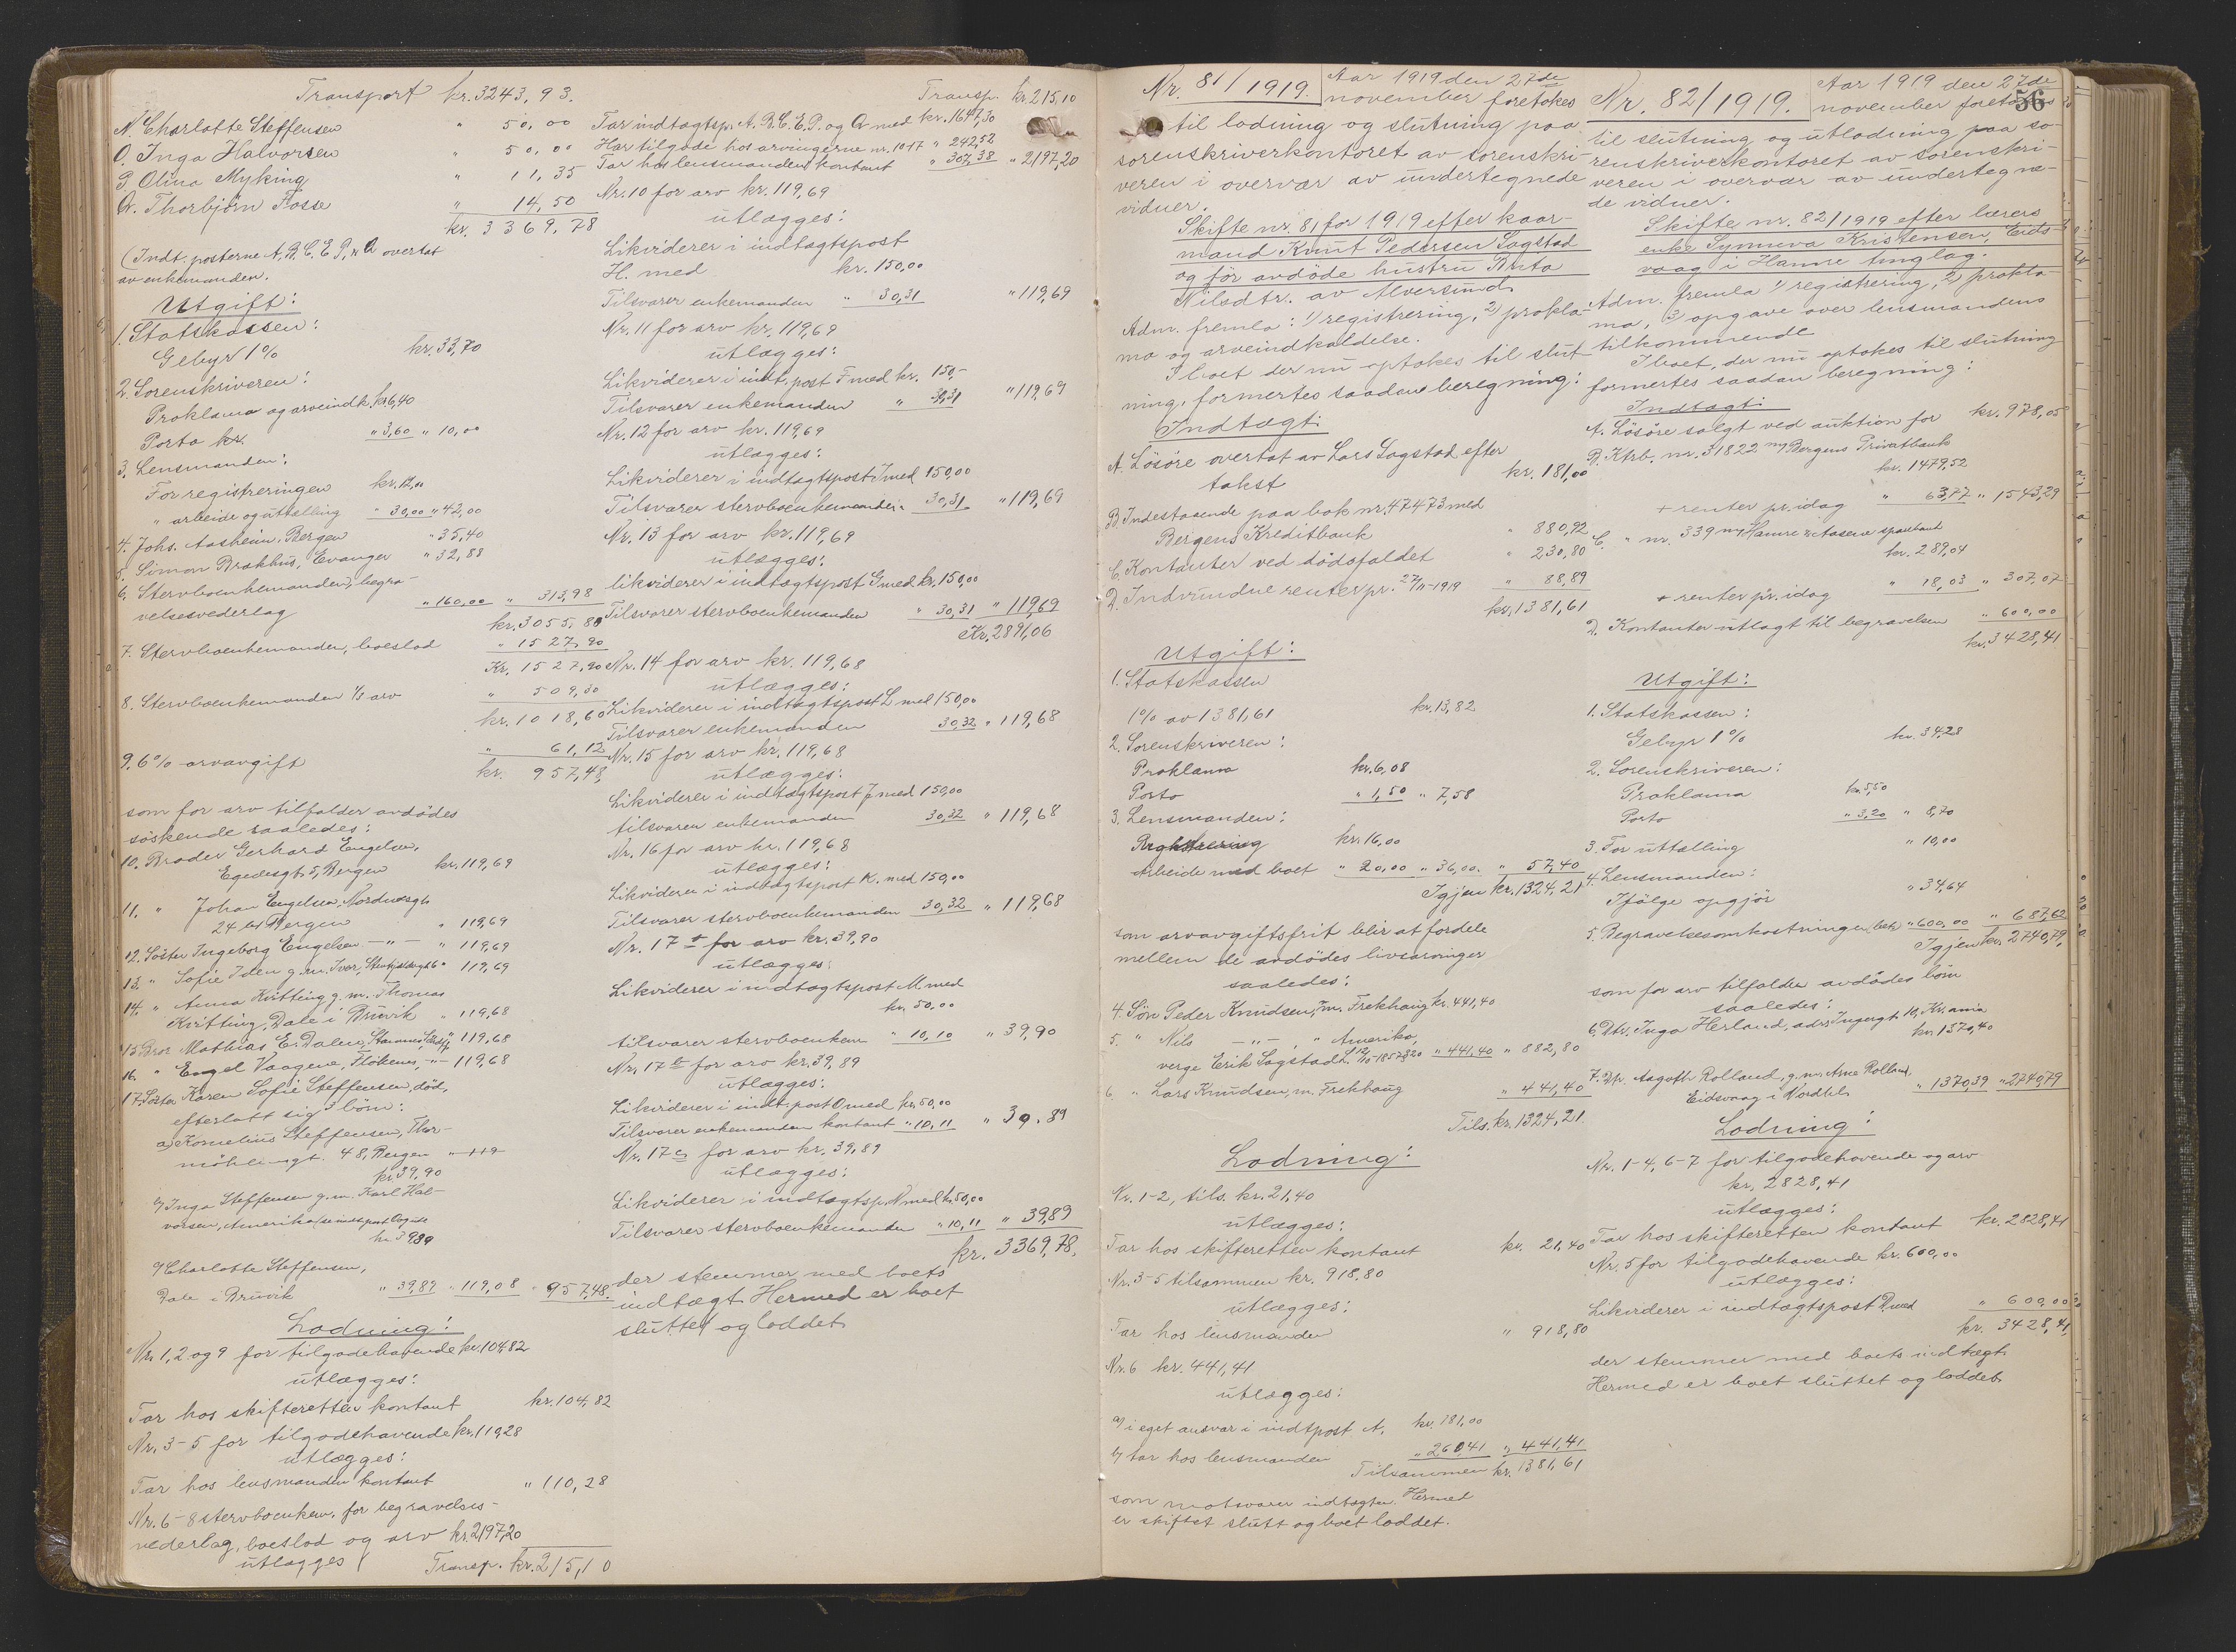 Transport kr. 3243,93.
N. Charlotte Steffensen " 50,00
O. Inga Halvorsen " 50,00
P. Olina Myking " 11,35
Q. Thorbjörn Fosse " 14,50
kr. 3369,78
(Indt. posterne A, B, C, E, P, & Q overtat
av enkemanden.
Utgift:
1. Statskassen:
Gebyr 1% kr. 33,70
2. Sorenskriveren:
Proklama og arveindk. kr. 6,40
Porto kr. " 3,60 " 10,00
3. Lensmanden:
For registreringen kr. 12,00
" arbeide og uttælling " 30,00 " 42,00
4. Johs. Aasheim, Bergen " 35,40
5. Simon Brækhus, Evanger " 32,88
6. Stervboenkemanden, begra-
velsesvederlag " 160,00 " 313,98
kr. 3055,80
7. Stervboenkemanden, boeslod " 1527,90
Kr. 1527,90
8. Stervboenkemanden 1/3 arv " 509,30
kr. 1018,60
9. 6% arvavgift " 61,12
kr. 957,48
som for arv tilfalder avdödes
söskende saaledes:
10. Broder Gerhard Engelsen,
Egedesgt. 5, Bergen kr. 119,69
11. " Johan Engelsen, Nordnesgt.
24 Bergen " 119,69
12. Söster Ingeborg Engelsen - " - " 119,69
13. " Sofie Iden g. m. Iver, " 119,69
14. " Anna Kvitting g. m. Thomas
Kvitting, Dale i Bruvik " 119,68
15. Bror Mathias E. Dalen, " 119,68
16. " Engel Vaagene, - " - 119,68
17. Söster Karen Sofie Steffensen, död,
efterlatt sig 3 börn:
a) Kornelius Steffensen, Thor-
möhlensgt. 48, Bergen " 119
kr. 39,90
b) Inga Steffensen g. m. Karl Hal-
vorsen, Amerika
kr. 39,89
c) Charlotte Steffensen,
Dale i Bruvik " 39,89 " 119,08 " 957,48
Lodning:
Nr. 1, 2 og 9 for tilgodehavende kr. 104,82
utlægges:
Tar hos skifteretten kontant kr. 104,82
Nr. 3-5 for tilgodehavende kr. 110,28
utlægges:
Tar hos lensmanden kontant " 110,28
Nr. 6-8 stervboenkem. for begravelses-
vederlag, boeslod og arv kr. 2197,20
utlægges
Transp. kr. 215,10
Transp. kr. 215,10
Tar indtægtsp. A. B. C. E. P. og Q med kr. 1647,30
Har tilgode hos arvingerne nr. 10-17 " 242,52
Tar hos lensmanden kontant " 307,38 " 2197,20
Nr. 10 for arv kr. 119,69
utlægges:
Likviderer i indtægtspost
H. med kr. 150,00
Tilsvarer enkemanden " 30,31 " 119,69
Nr. 11 for arv kr. 119,69
utlægges:
Likviderer i indt. post F med kr. 150,-
Tilsvarer enkemanden " 30,31 " 119,69
Nr. 12 for arv kr. 119,69
utlægges:
Likviderer i indtægtspost I med 150,00
Tilsvarer stervboenkemanden 30,31 " 119,69
Nr. 13 for arv kr. 119,69
utlægges:
likviderer i indtægtspost G med kr. 150,00
Tilsvarer stervboenkemanden " 30,31 " 119,69
Kr. 2891,06
Nr. 14 for arv kr. 119,68
utlægges:
Likviderer i indtægtspost L med 150,00
Tilsvarer enkemanden 30,32 " 119,68
Nr. 15 for arv kr. 119,68
utlægges:
Likviderer i indtægtspost J med 150,00
tilsvarer enkemanden 30,32 " 119,68
Nr. 16 for arv kr. 119,68
utlægges:
Likviderer i indtægtspost K. med 150,00
Tilsvarer stervboenkemanden 30,32 " 119,68
Nr. 17 a for arv kr. 39,90
utlægges:
Likviderer i indtægtspost M. med
kr. 50,00
tilsvarer stervboenkem " 10,10 " 39,90
Nr. 17 b for arv kr. 39,89
utlægges:
Likviderer i indt. post O med kr. 50,00
Tilsvarer enkemanden kontant " 10,11 " 39,89
Nr. 17 c for arv kr. 39,89
utlægges:
Likviderer i indtægtsp. N med kr. 50,00
Tilsvarer stervboenkemanden " 10,11 " 39,89
kr. 3369,78,
der stemmer med boets
indtægt. Hermed er boet
sluttet og loddet.
Nr. 81/1919. Aar 1919 den 27de
november foretokes
til lodning og slutning paa
sorenskriverkontoret av sorenskri-
veren i overvær av undertegnede
vidner.
Skifte nr. 81 for 1919 efter kaar-
mand Knut Pedersen Sagstad
og för avdöde hustru Brita
Nilsdtr. av Alversund.
Adm. fremla: 1) registrering, 2) prokla-
ma og arveindkaldelse.
I boet der nu optokes til slut-
ning, formertes saadan beregning:
Indtægt:
A. Lösöre overtat av Lars Sagstad efter
takst kr. 181,00
B. Indestaaende paa bok nr. 47473 med
Bergens Kreditbank " 880,92
C. Kontanter ved dödsfaldet " 230,80
D. Indvundne renter pr. 27/11-1919 " 88,89
kr. 1381,61
Utgift:
1. Statskassen
1% av 1381,61 kr. 13,82
2. Sorenskriveren:
Proklama kr. 6,08
Porto " 1,50 " 7,58
3. Lensmanden:
Registrering kr. 16,00
Arbeide med boet " 20,00 " 36,00 " 57,40
Igjen kr. 1324,21
som arvavgiftsfrit blir at fordele
mellem de avdödes livsarvinger
saaledes:
4. Sön Peder Knudsen, m. Frekhaug kr. 441,40
5. " Nils - " - , " Amerika,
verge Erik Sagstad " 441,40 " 882,80
6. " Lars Knudsen, m. Frekhaug " 441,40
Tils. kr. 1324,21.
Lodning:
Nr. 1-2, tils. kr. 21,40
utlægges:
Tar hos skifteretten kontant kr. 21,40
Nr. 3-5 tilsammen kr. 918,80
utlægges:
Tar hos lensmanden " 918,80
Nr. 6 kr. 441,41
utlægges:
a) i eget ansvar i indtpost A. kr. 181,00
b) tar hos lensmanden " 260,41 " 441,41
Tilsammen kr. 1381,61
som motsvarer indtægten. Hermed
er skiftet slutt og boet loddet.
56
Nr. 82/1919. Aar 1919 den 27de
november foretokes
til slutning og utlodning paa so-
renskriverkontoret av sorenskri-
veren i overvær av undertegne-
de vidner.
Skifte nr. 82/1919 efter lærers
enke Synneva Kristensen, Eids-
vaag i Hamre tinglag.
Adm. fremla 1) registrering, 2) prokla-
ma, 3) opgave over lensmandens
tilkommende
I boet, der nu optokes til slutning
formertes saadan beregning:
Indtægt:
A. Lösöre solgt ved auktion for kr. 978,05
B. Ktrb. nr. 31822 m/ Bergens Privatbank
kr. 1479,52
+ renter pr. idag " 63,77 " 1543,29
C. " nr. 339 m/ Hamre & Aasene sparebank
kr. 289,04
+ renter pr. idag " 18,03 " 307,07
D. Kontanter utlagt til begravelsen " 600,00
kr. 3428,41
Utgift:
1. Statskassen:
Gebyr 1% kr. 34,28
2. Sorenskriveren:
Proklama kr. 5,50
Porto " 3,20 " 8,70
3. For uttælling " 10,00
4. Lensmanden:
Ifölge opgjör " 34,64
5. Begravelsesomkostninger, " 600,00 " 687,62
Igjen kr. 2740,79,
som for arv tilfalder avdödes börn
saaledes:
6. Dtr. Inga Herland, adr. 10, Kr.ania
kr. 1370,40
7. Dtr. Aagoth Rolland, g. m. Arne Rolland,
Eidsvaag i Nordhl. " 1370,39 " 2740,79
Lodning:
Nr. 1-4, 6-7 for tilgodehavende og arv
kr. 2828,41
utlægges:
Tar hos skifteretten kontant kr. 2828,41
Nr. 5 for tilgodehavende kr. 600,00
utlægges:
Likviderer i indtægtspost D. med " 600,00
kr. 3428,41,
der stemmer med boets indtægt.
Hermed er boet sluttet og loddet.